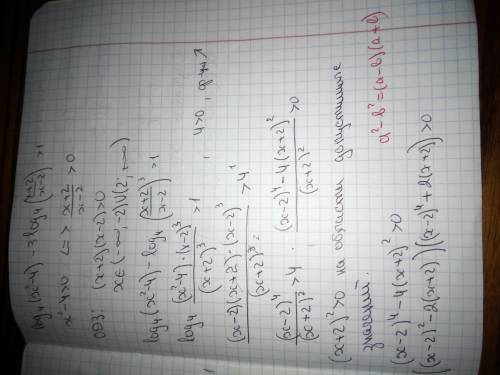 log₄(x²-4) - 3log₄(x+2)/(x-2) > 1
x²-4>0 <=> (x+2)/(x-2) > 0
ОДЗ: (x+2)(x-2)>0
x∈(-∞,-2)∪(2,+∞)
log₄(x²-4) - log₄((x+2)/(x-2))³ > 1
log₄ (x²-4)·(x-2)³/(x+2)³ > 1, 4>0, ф-ция ↗
(x-2)(x+2)·(x-2)³/(x+2)³ > 4¹
(x-2)⁴/(x+2)² > 4 . ((x-2)⁴-4(x+2)²)/(x+2)² > 0
(x+2)²>0 на области допустимых
значений.
(x-2)⁴-4(x+2)²>0
a²-b²=(a-b)(a+b)
((x-2)²-2(x+2))((x-2)⁴+2(x+2))>0